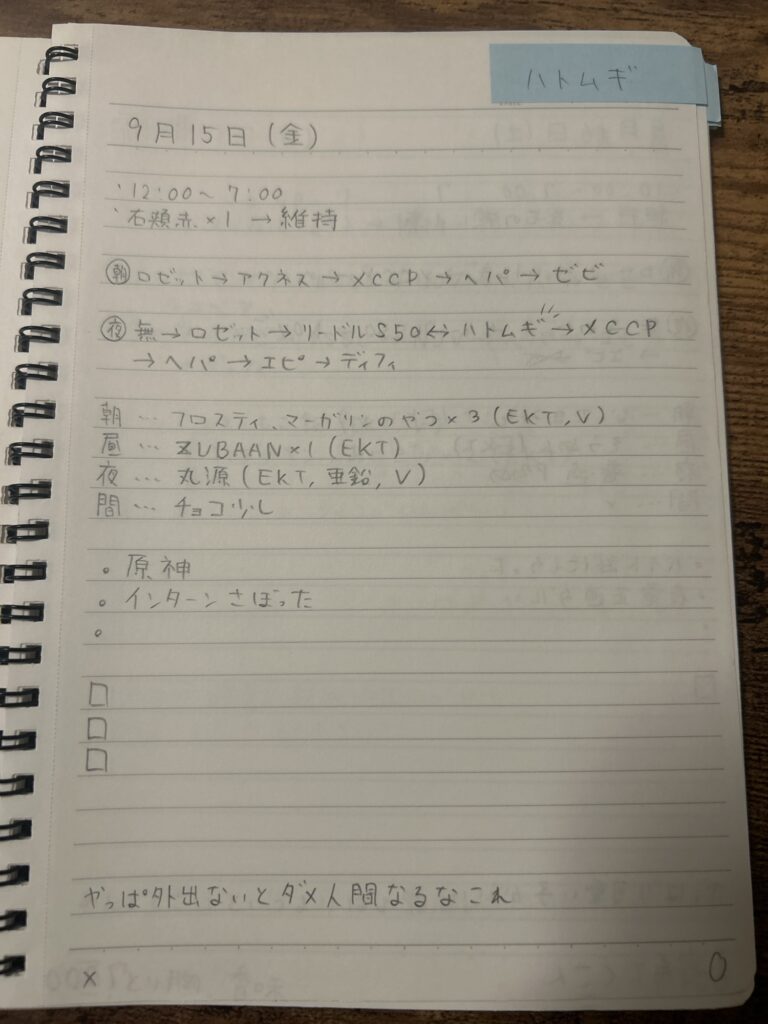 ハトムギ
9月15日(金)
・12:00〜7:00
・右頬赤×1→維持
朝 ロゼット→アクネス→メCCP→ヘパ→ゼビ
夜 無→ロゼット→リードルS50↔ハトムギ→メCCP
→ヘパ→エピ→ディフィ
朝…フロスティ、マーガリンのやつ×3(EKT,V)
昼…ZUBAAN×1(EKT)
夜…丸源(EKT,亜鉛,V)
間…チョコ少し
。原神
。インターンさぼった
。
□
□
□
やっぱ外出ないとダメ人間なるなこれ
×
0